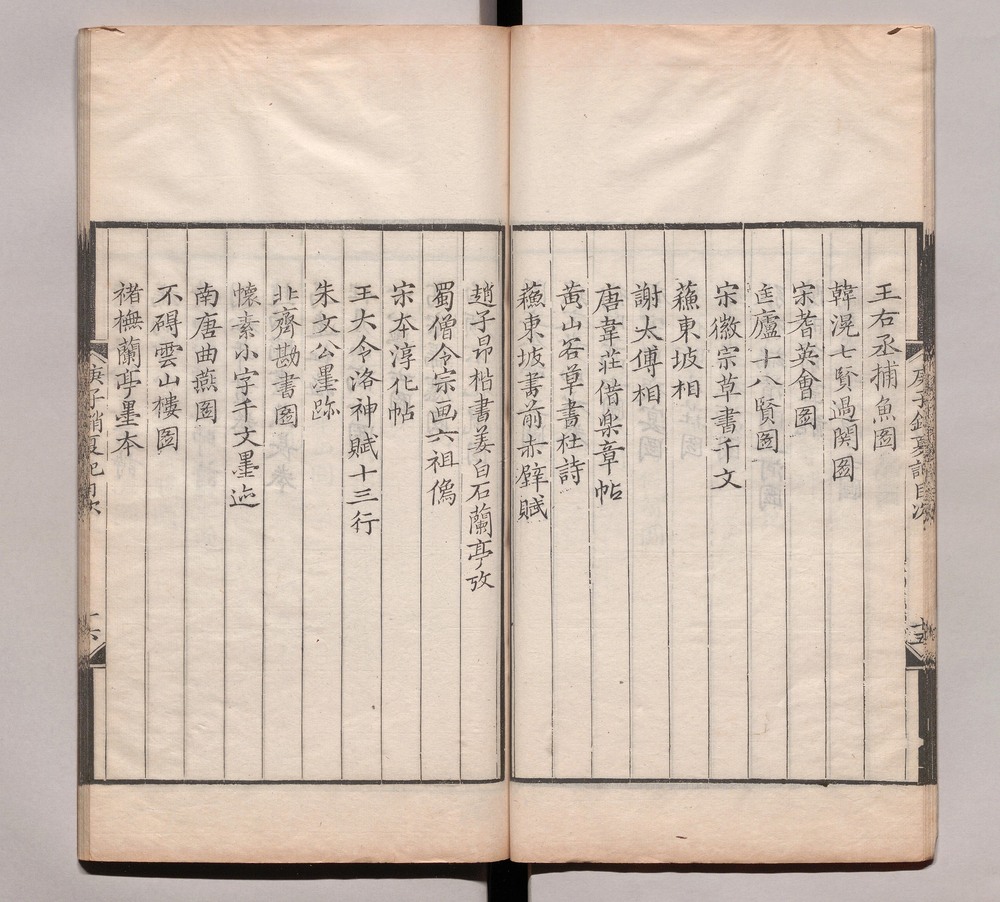 王右丞捕魚圖
韓滉七賢過関圖
宋耆英會圖
匡廬十八賢圖
宋徽宗草書千文
蘓東坡相
謝太傅相
唐韋莊借樂章帖
黄山谷草書杜詩
蘓東坡書前赤壁賦
趙子昂楷書姜白石蘭亭攷
蜀僧令宗画六祖像
宋本淳化帖
王大令洛神賦十三行
朱文公墨跡
北齊勘書圖
懷素小字千文墨迹
南唐曲燕圖
不碍雲山樓圖
褚橅蘭亭墨本
庚子銷夏記目次